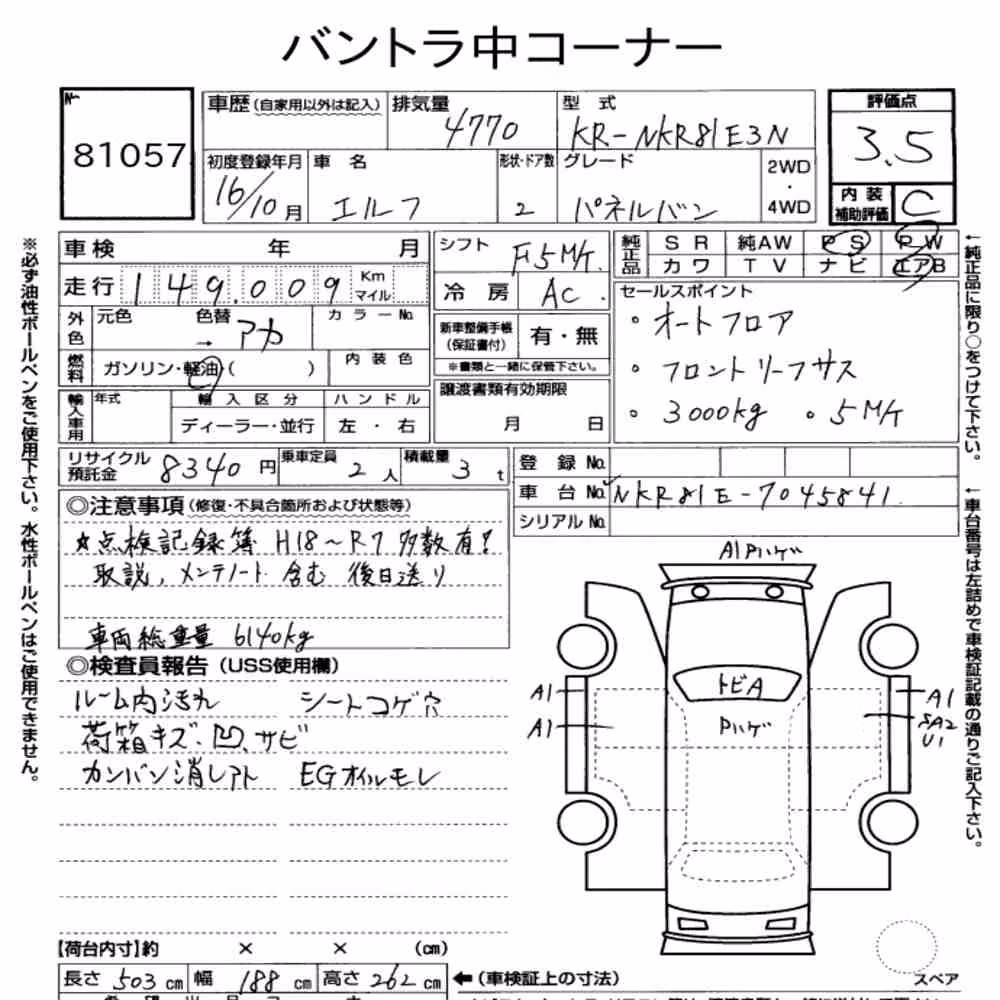 バントラ中コーナー
No. 81057
車歴(自家用以外は記入) 排気量 4770 型式 KR-NKR81E3N
初度登録年月 16/10月 車名 エルフ 形状・ドア数 2 グレード パネルバン 2WD・4WD
評価点 3.5
内装補助評価 C
車検 年 月
走行 149.009 Km マイル
外色 元色 色替→アカ カラーNo.
燃料 ガソリン・軽油( ) 内装色
輸入車用 年式 輸入区分 ディーラー・並行 ハンドル 左・右
シフト F5M/T.
冷房 AC.
新車整備手帳(保証書付) 有・無
※書類と一緒に保管下さい。
譲渡書類有効期限 月 日
純正品 SR 純AW PS PW
カワ TV ナビ エアB
セールスポイント
・オートフロア
・フロントリーフサス
・3000kg ・5M/T
リサイクル預託金 8340円 乗車定員 2人 積載量 3t
登録No.
車台No. NKR81E-7045841
シリアルNo.
◎注意事項(修復・不具合箇所および状態等)
☆点検記録簿 H18～R7 多数有!
取説,メンテノート 含む 後日送り
車両総重量 6140kg
◎検査員報告(USS使用欄)
ルーム内汚れ シートコゲ穴
荷箱キズ・凹、サビ
カンバン消しアト EGオイルモレ
A1Pハゲ
トビA
Pハゲ
A1
A1
A1
SA2
U1
【荷台内寸】約 × × (cm)
長さ 503 cm 幅 188 cm 高さ 262 cm ←(車検証上の寸法)
スペア
※必ず油性ボールペンをご使用下さい。水性ボールペンはご使用できません。
←純正品に限り○をつけて下さい。
←車台番号は左詰めで車検証記載の通りご記入下さい。